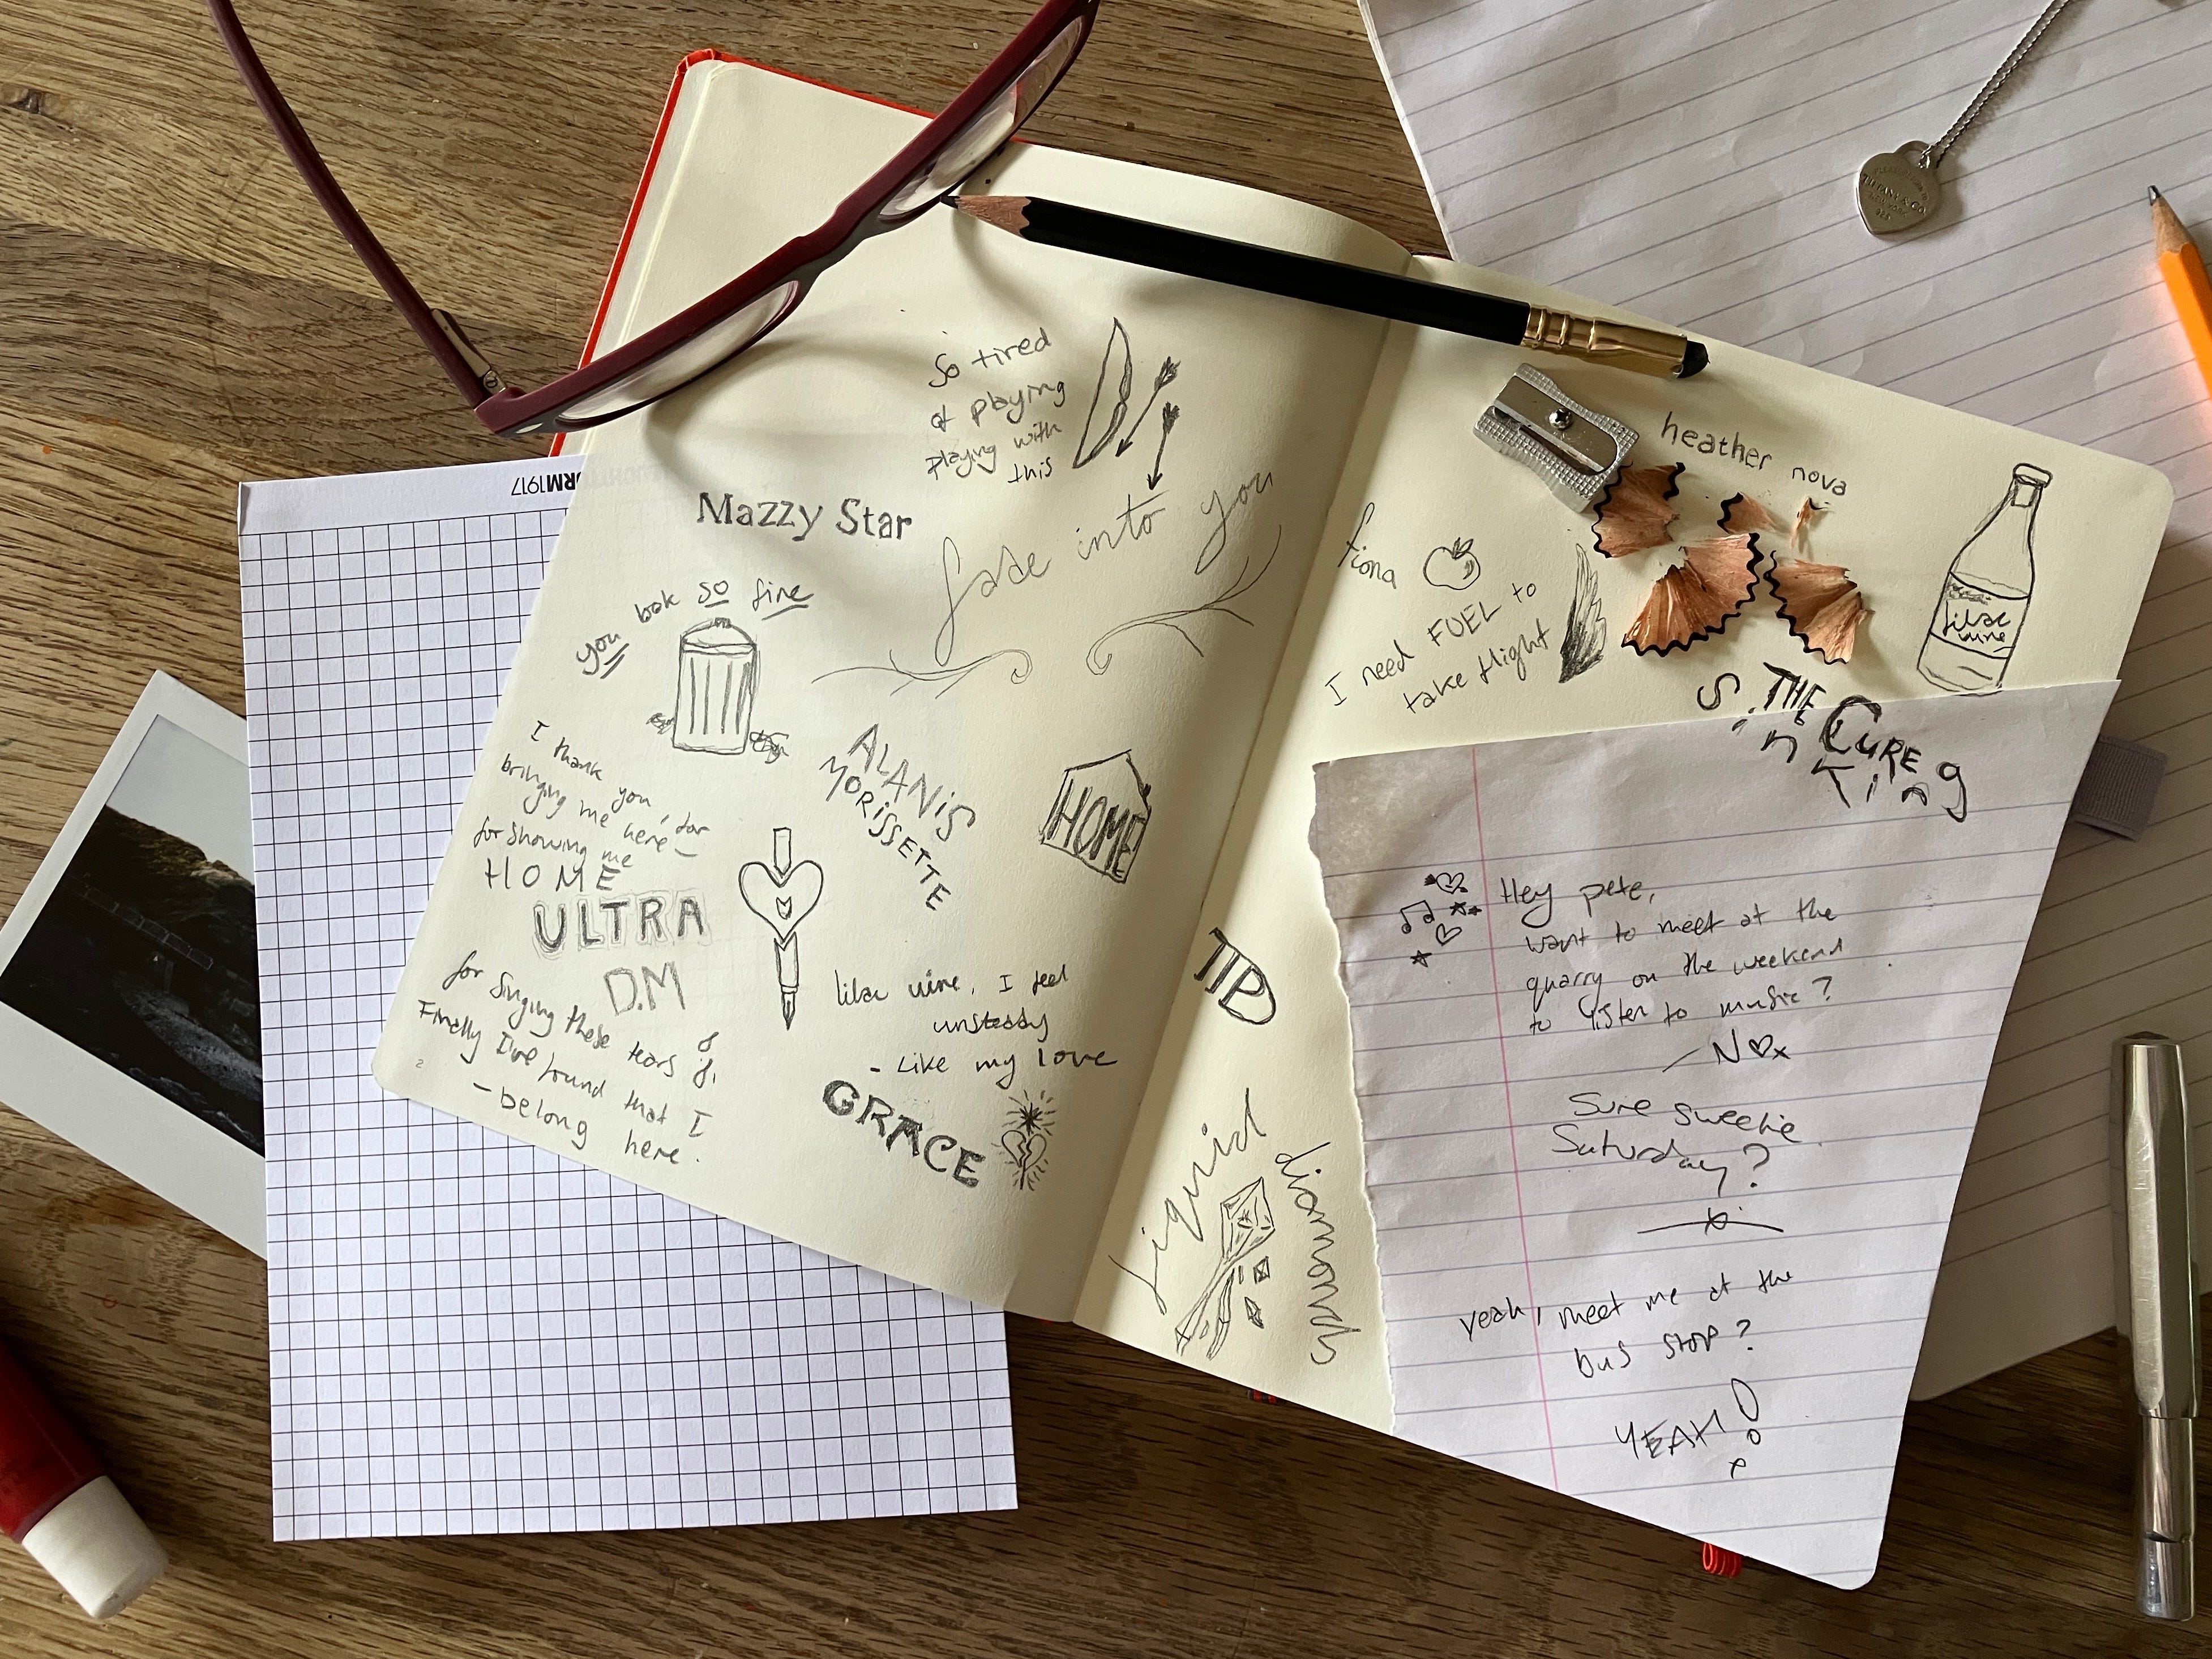 RM1917
So tired
of playing
playing with
this
Mazzy Star
fade into you
you look so fine
I thank you, for
bringing me here –
for showing me
HOME
ULTRA
D.M
for singing these tears
Finally I've found that I
– belong here.
2
ALANIS
MORISSETTE
HOME
lilac wine, I feel
unsteady
- Like my love
GRACE
heather nova
fiona
I need FUEL to
take flight
Lilac
wine
THE CURE
TID
Liquid
diamonds
Hey pete,
want to meet at the
quarry on the weekend
to listen to music?
– N♡x
Sure sweetie
Saturday?
x
yeah, meet me at the
bus stop?
YEAH!
x
TIFFANY & CO.
NEW YORK
925